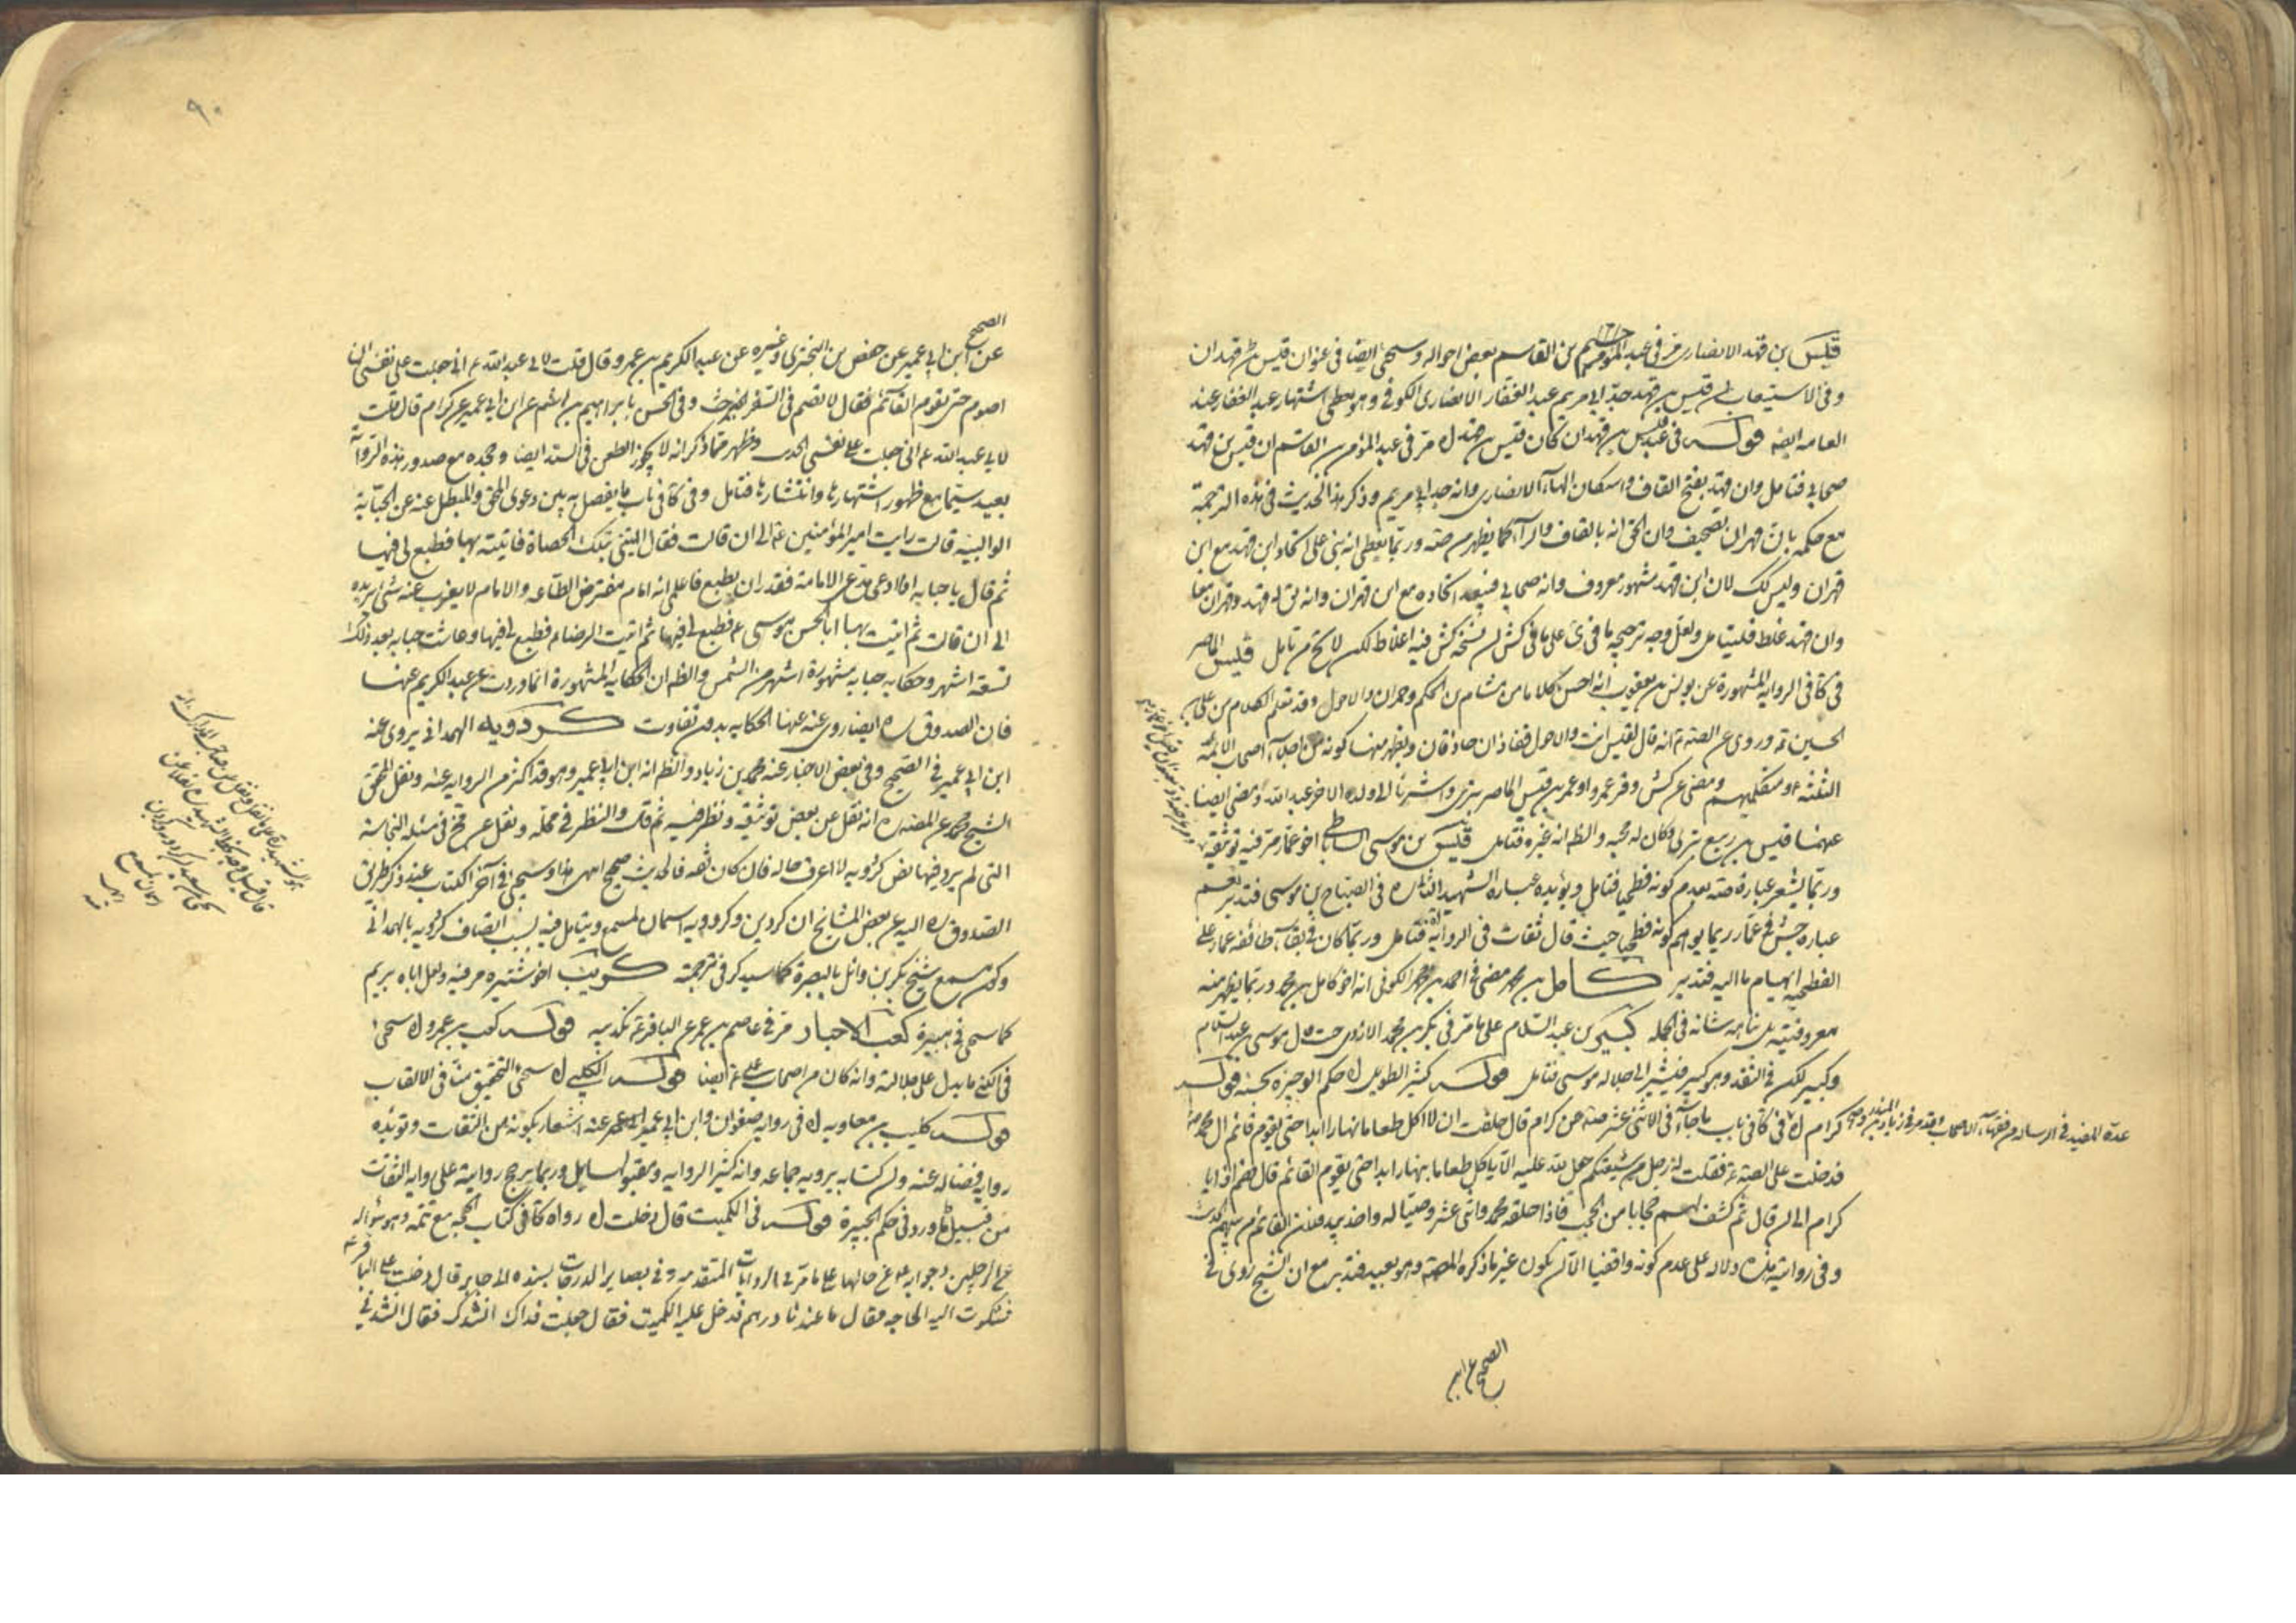 قيس بن قهد الانصاري مر في عبد المؤمن بن القاسم بعض احواله وسيجئ ايضا في عنوان قيس بن قهدان
وفي الاستيعاب ان قيس بن قهد جد ابي مريم عبد الغفار الانصاري الكوفي وهو يعطي اشتهار عبد الغفار عند
العامه ايضا قوله في قيس بن قهدان كان قيس بن مر في عبد المؤمن بن القاسم ان قيس بن قهد
صحابي فتامل وان قهد بفتح القاف واسكان الهاء الانصاري وانه جد ابي مريم وذكر هذا الحديث في هذه الترجمة
مع حكمه بان قهدان تصحيف وان الحق انه بالقاف والراء كما يظهر من صه وربما يعطي انه بنى على اتحاد ابن قهد مع ابن
قهران وليس كك لان ابن قهد مشهور معروف وانه صحابي فيبعد اتحاده مع ابن قهران وانه يق له قهد وقهران معا
وان قهد غلط فليتامل ولعل وجه ترجيحه ما في ئ على ما في كش لان نسخه كش فيه اغلاط لكن لا يخ من تامل قيس الماصر
في كافي الرواية المشهورة عن يونس بن يعقوب انه احسن كلاما من هشام بن الحكم وحمران والاحول وقد تعلم الكلام من علي بن
الحسين ع وروى عن الصه ع انه قال لقيس انت والاحول قفازان حاذقان ويظهر منها كونه من اجلاء اصحاب الائمه
الثلثه ع ومتكلميهم ومضى عن كش وفر عمرو او عمر بن قيس الماصر بتري واشرنا الى ولده الاخر عبد الله ومضى ايضا
عنهما قيس بن ربيع بتري وكان له محبه والظ انه غيره فتامل قيس بن موسى الساباطي اخو عمار مر فيه توثيقه
وربما يشعر عبارة صه بعدم كونه فطحيا فتامل ويؤيده عباره الشهيد الثاني ره في الصباح بن موسى فتدبر نعم
عباره جش في عمار ربما يوهم كونه فطحيا حيث قال ثقات في الرواية فتامل وربما كان في بقاء طائفه عمار على
الفطحيه ايهام ما اليه فتدبر كامل بن محمد مضى في احمد بن محمد الكوفي انه اخو كامل بن محمد وربما يظهر منه
معروفيته بل نباهه شانه في الجمله كبير بن عبد السلام على ما مر في بكر بن محمد الازدي موسى بن عبد السلام
وكبير لكن في النقد وهو كبير فيشير الى جلاله موسى فتامل قوله كثير الطويل حكم الوجيزه بحسنه قوله
كرام في كافي باب ما جاء في الاثني عشر عن كرام قال حلفت ان لا اكل طعاما نهارا ابدا حتى يقوم قائم ال محمد
عده المفيد في الرساله من فقهاء الاصحاب وقد مر في زياد بن المنذر
فدخلت على الصه ع فقلت له رجل من شيعتكم جعل لله عليه الا ياكل طعاما بنهار ابدا حتى يقوم القائم قال فصم اذا يا
كرام الى ان قال ثم كشف لهم حجابا من الحجب فاذا خلفه محمد واثني عشر وصيا له واخذ بيد فلان القائم من بينهم الحديث
وفي روايته هذه دلاله على عدم كونه واقفيا الا ان يكون غير ما ذكره المصه وهو بعيد فتدبر مع ان الشيخ روى في
الصحيح عن ابن
٩٠
الصحيح
عن ابن ابي عمير عن حفص بن البختري وغيره عن عبد الكريم بن عمرو قال قلت لابي عبد الله ع اني جعلت على نفسي ان
اصوم حتى يقوم القائم فقال لا تصم في السفر الحديث وفي الحسن بابراهيم بن هاشم عن ابن ابي عمير عن كرام قال قلت
لابي عبد الله ع اني جعلت على نفسي الحديث وظهر مما ذكر انه لا يجوز الطعن في السند ايضا وجحده مع صدور هذه الرواية
بعيد سيما مع ظهور اشتهارها وانتشارها فتامل وفي كافي باب ما يفصل به بين دعوى المحق والمبطل عنه عن حبابة
الوالبية قالت رايت امير المؤمنين ع الى ان قالت فقال ايتيني بتلك الحصاة فاتيته بها فطبع لي فيها
ثم قال يا حبابه اذا ادعى مدعى الامامة فقدر ان يطبع فاعلمي انه امام مفترض الطاعه والامام لا يعزب عنه شئ يريده
الى ان قالت ثم اتيت بها ابا الحسن موسى ع فطبع لي فيها ثم اتيت الرضا ع فطبع لي فيها وعاشت حبابه بعد ذلك
تسعة اشهر وحكايه حبابه مشهورة اشهر من الشمس والظ ان الحكايه المشهورة انما وردت عن عبد الكريم عنها
فان الصدوق ره ايضا روى عنه عنها الحكايه بدون تفاوت كردويه الهمداني يروى عنه
ابن ابي عمير في الصحيح وفي بعض الاخبار عنه محمد بن زياد والظ انه ابن ابي عمير وهو قد اكثر من الروايه عنه ونقل المحقق
الشيخ محمد عن المصه ره انه نقل عن بعض توثيقه ونظر فيه ثم قال والنظر في محله ونقل عن مسئله النجاسة
التي لم يرد فيها نص كردويه لا اعرف حاله فان كان ثقه فالحديث صحيح انتهى هذا وسيجئ في آخر الكتاب عند ذكر طريق
الصدوق ره اليه عن بعض المشايخ ان كردين وكردويه اسمان لمسمع ويتامل فيه بسبب اتصاف كردويه بالهمداني
وكون مسمع شيخ بكر بن وائل بالبصرة كما سيذكر في ترجمة كريب اخو شتيره مر فيه ولعل اباه بريم
كما سيجئ في هبيرة كعب الاحبار مر في عاصم بن عمر عن الباقر ع تكذيبه قوله كعب بن عمرو سيجئ
في الكنى ما يدل على جلالته وانه كان من اصحاب علي ع ايضا قوله الكلبي سيجئ التحقيق منا في الالقاب
قوله كليب بن معاويه في روايه صفوان وابن ابي عمير عنه اشعار بكونه من الثقات وتؤيده
روايه فضاله عنه وان كتابه يرويه جماعه وانه كثير الروايه ومقبولها وربما يرجح روايته على روايه الثقات
من قبيل ما ورد في حكم الجبيرة قوله في الكميت قال دخلت رواه كافي في كتاب الحجه مع تتمه وهو سؤاله
عن الرجلين وجوابه ع عن حالهما على ما مر في الروايات المتقدمه وفي بصاير الدرجات بسنده الى جابر قال دخلت على الباقر ع
فشكوت اليه الحاجه فقال ما عندنا درهم فدخل عليه الكميت فقال جعلت فداك انشدك فقال انشدني